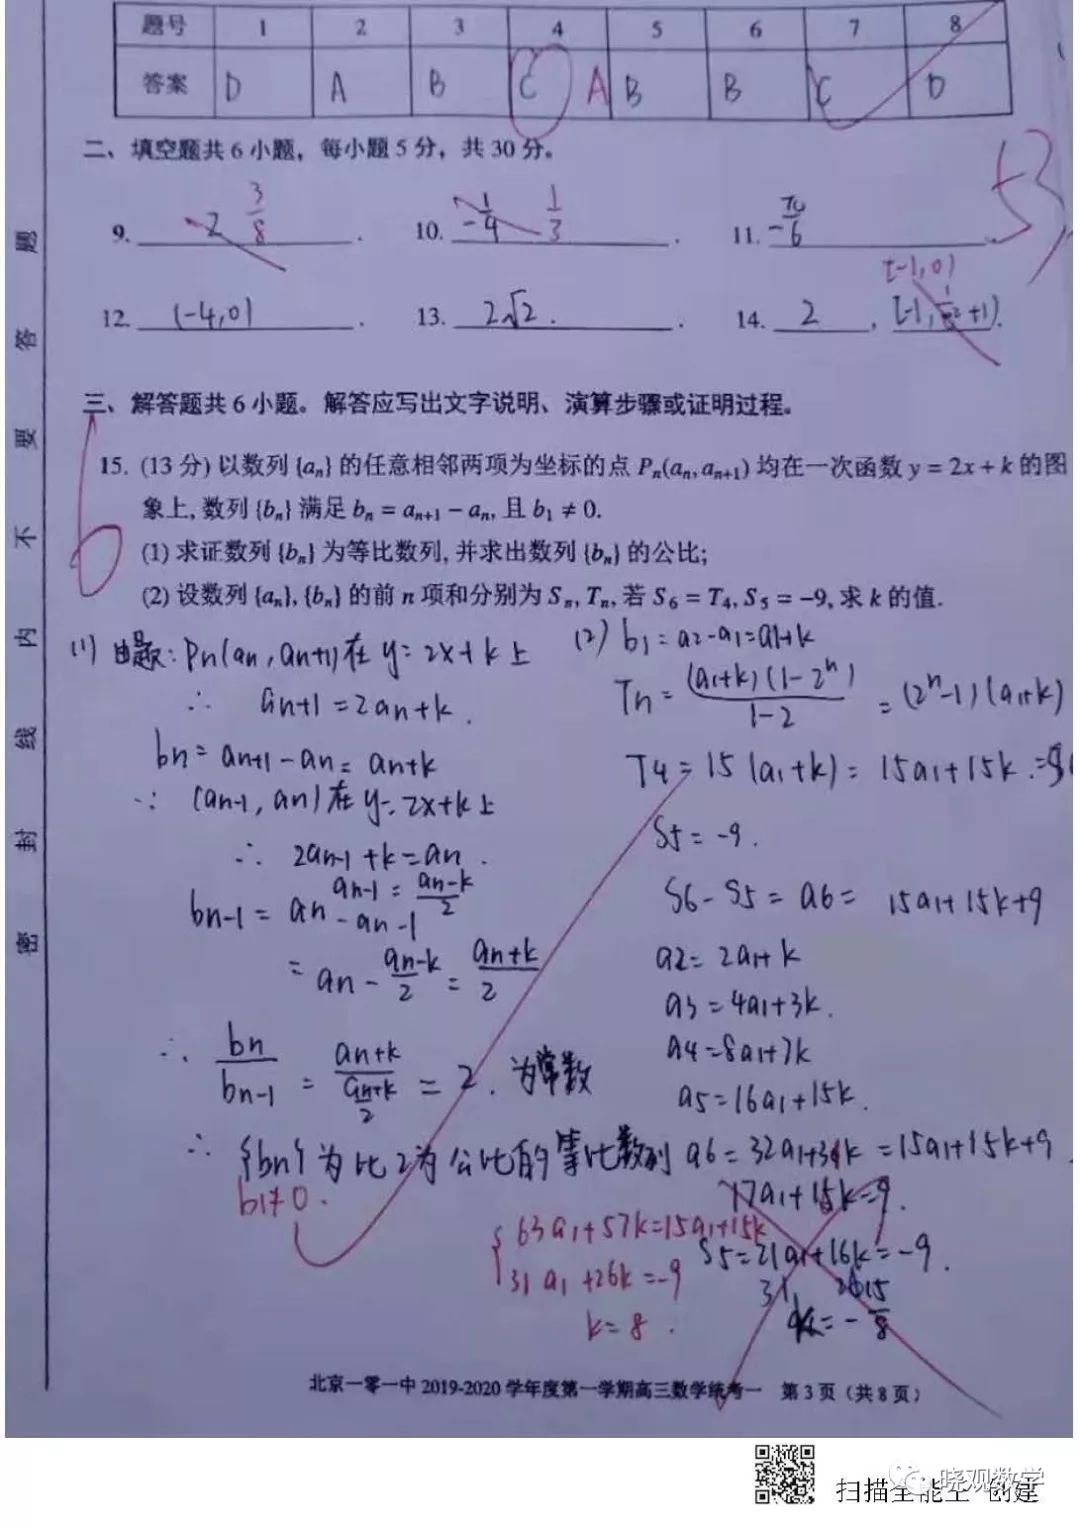 题号 1 2 3 4 5 6 7 8
答案 D A B C A B B C D
二、填空题共6小题，每小题5分，共30分。
53
9. 2 3/8 . 10. -1/4 1/3 . 11. -π/6 .
[-1,0)
12. (-4,0) . 13. 2√2 . 14. 2 ,
三、解答题共6小题。解答应写出文字说明、演算步骤或证明过程。
15. (13分) 以数列 {aₙ} 的任意相邻两项为坐标的点 Pₙ(aₙ, aₙ₊₁) 均在一次函数 y = 2x + k 的图
象上, 数列 {bₙ} 满足 bₙ = aₙ₊₁ − aₙ, 且 b₁ ≠ 0.
(1) 求证数列 {bₙ} 为等比数列, 并求出数列 {bₙ} 的公比;
(2) 设数列 {aₙ}, {bₙ} 的前 n 项和分别为 Sₙ, Tₙ, 若 S₆ = T₄, S₅ = −9, 求 k 的值.
(1) 由题: Pn(an, an+1)在 y=2x+k上
∴ an+1=2an+k.
bn=an+1-an=an+k
∵ (an-1, an)在y=2x+k上
∴ 2an-1+k=an.
an-1=(an-k)/2
bn-1=an-an-1
=an-(an-k)/2=(an+k)/2
∴ bn/bn-1=(an+k)/((an+k)/2)=2. 为常数
∴ {bn}为比2为公比的等比数列
b1≠0.
(2) b1=a2-a1=a1+k
Tn=(a1+k)(1-2ⁿ)/(1-2)=(2ⁿ-1)(a1+k)
T4=15(a1+k)=15a1+15k.
S5=-9.
S6-S5=a6=15a1+15k+9
a2=2a1+k
a3=4a1+3k.
a4=8a1+7k
a5=16a1+15k.
a6=32a1+31k=15a1+15k+9
17a1+15k=9.
{63a1+57k=15a1+15k
S5=21a1+16k=-9.
31 26
31a1+26k=-9
k=-15/8
k=8.
北京一零一中 2019-2020 学年度第一学期高三数学统考一 第3页（共8页）
密 封 线 内 不 要 答 题
晓观数学
扫描全能王 创建